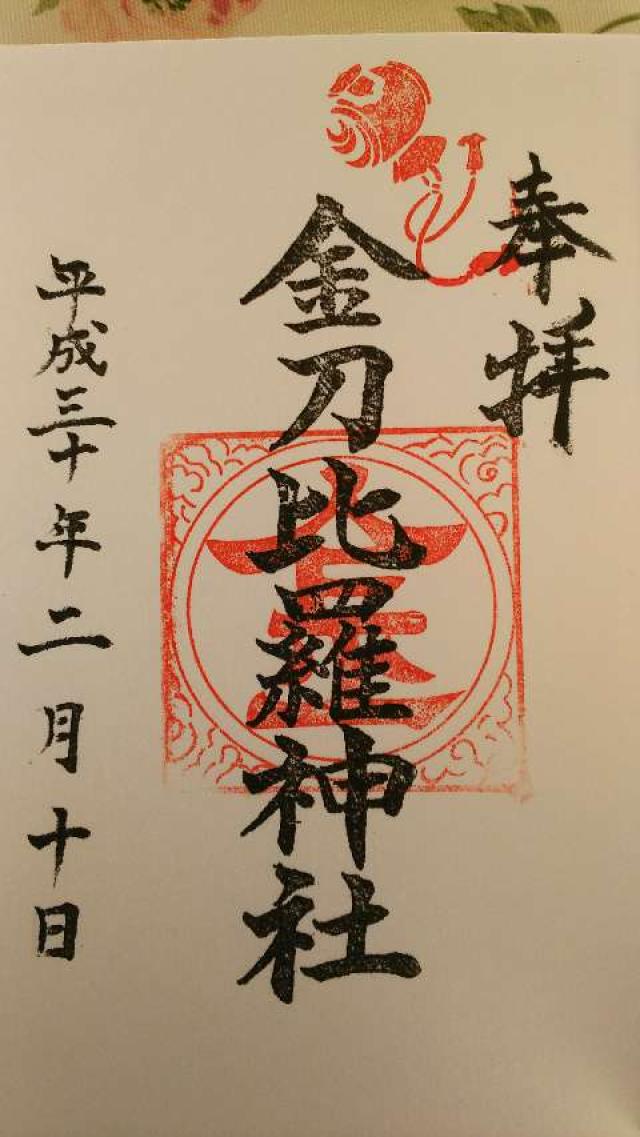 奉拝
金刀比羅神社
平成三十年二月十日